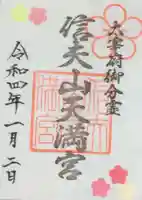 太宰府御分霊
信夫山天満宮
令和四年一月二日